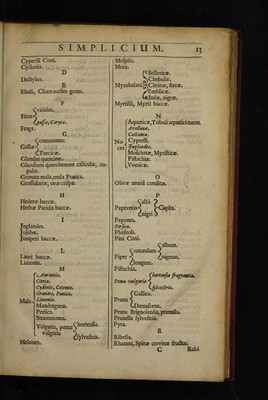 SIMPLICIUM. 13
Cypressi Coni.
Cydonia.
D
Dactylus.
E
Ebuli, Chamæactes grana.
F
Ficus { virides.
passæ, Caricæ.
Fraga.
G
Gallæ { communes.
Turcicæ.
Glandes quercinæ.
Glandium quercinorum caliculæ, cupulæ.
Granata mala, mala Punica.
Grossulariæ, uvæ crispæ.
H
Hederæ baccæ.
Herbæ Paridis baccæ.
I
Juglandes.
Jujubæ.
Juniperi baccæ.
L
Lauri baccæ.
Limonia.
M
Mala { Aurantia.
Citria.
Cydonia, Cotonea.
Granata, Punica.
Limonia.
Mandragoræ.
Persica.
Stramonia.
Vulgaria, poma vulgaria { hortensia.
sylvestria.
Melones.
Mespila.
Mora.
Myrobalani { Bellericæ.
Chebulæ.
Citrinæ, flavæ.
Emblicæ.
Indæ, nigræ.
Myrtilli, Myrti baccæ.
N
Nuces { Aquaticæ, Tribuli aquatici nuces.
Avellanæ.
Castaneæ.
Cupressi.
Juglandes.
Moschatæ, Myristicæ.
Pistachiæ.
Vomicæ.
O
Olivæ muria conditæ.
P
Papaveris { albi
nigri } Capita.
Pepones.
Persica.
Phaseoli.
Pini Coni.
Piper { rotundum { album.
nigrum.
longum.
Pistachia.
Poma vulgaria { hortensia fragrantia.
sylvestria.
Pruna { Gallica.
Damascena.
Pruna Brignolensia, prunella.
Prunella sylvestria.
Pyra.
R
Ribesia.
Rhamni, Spinæ cervinæ fructus.
C